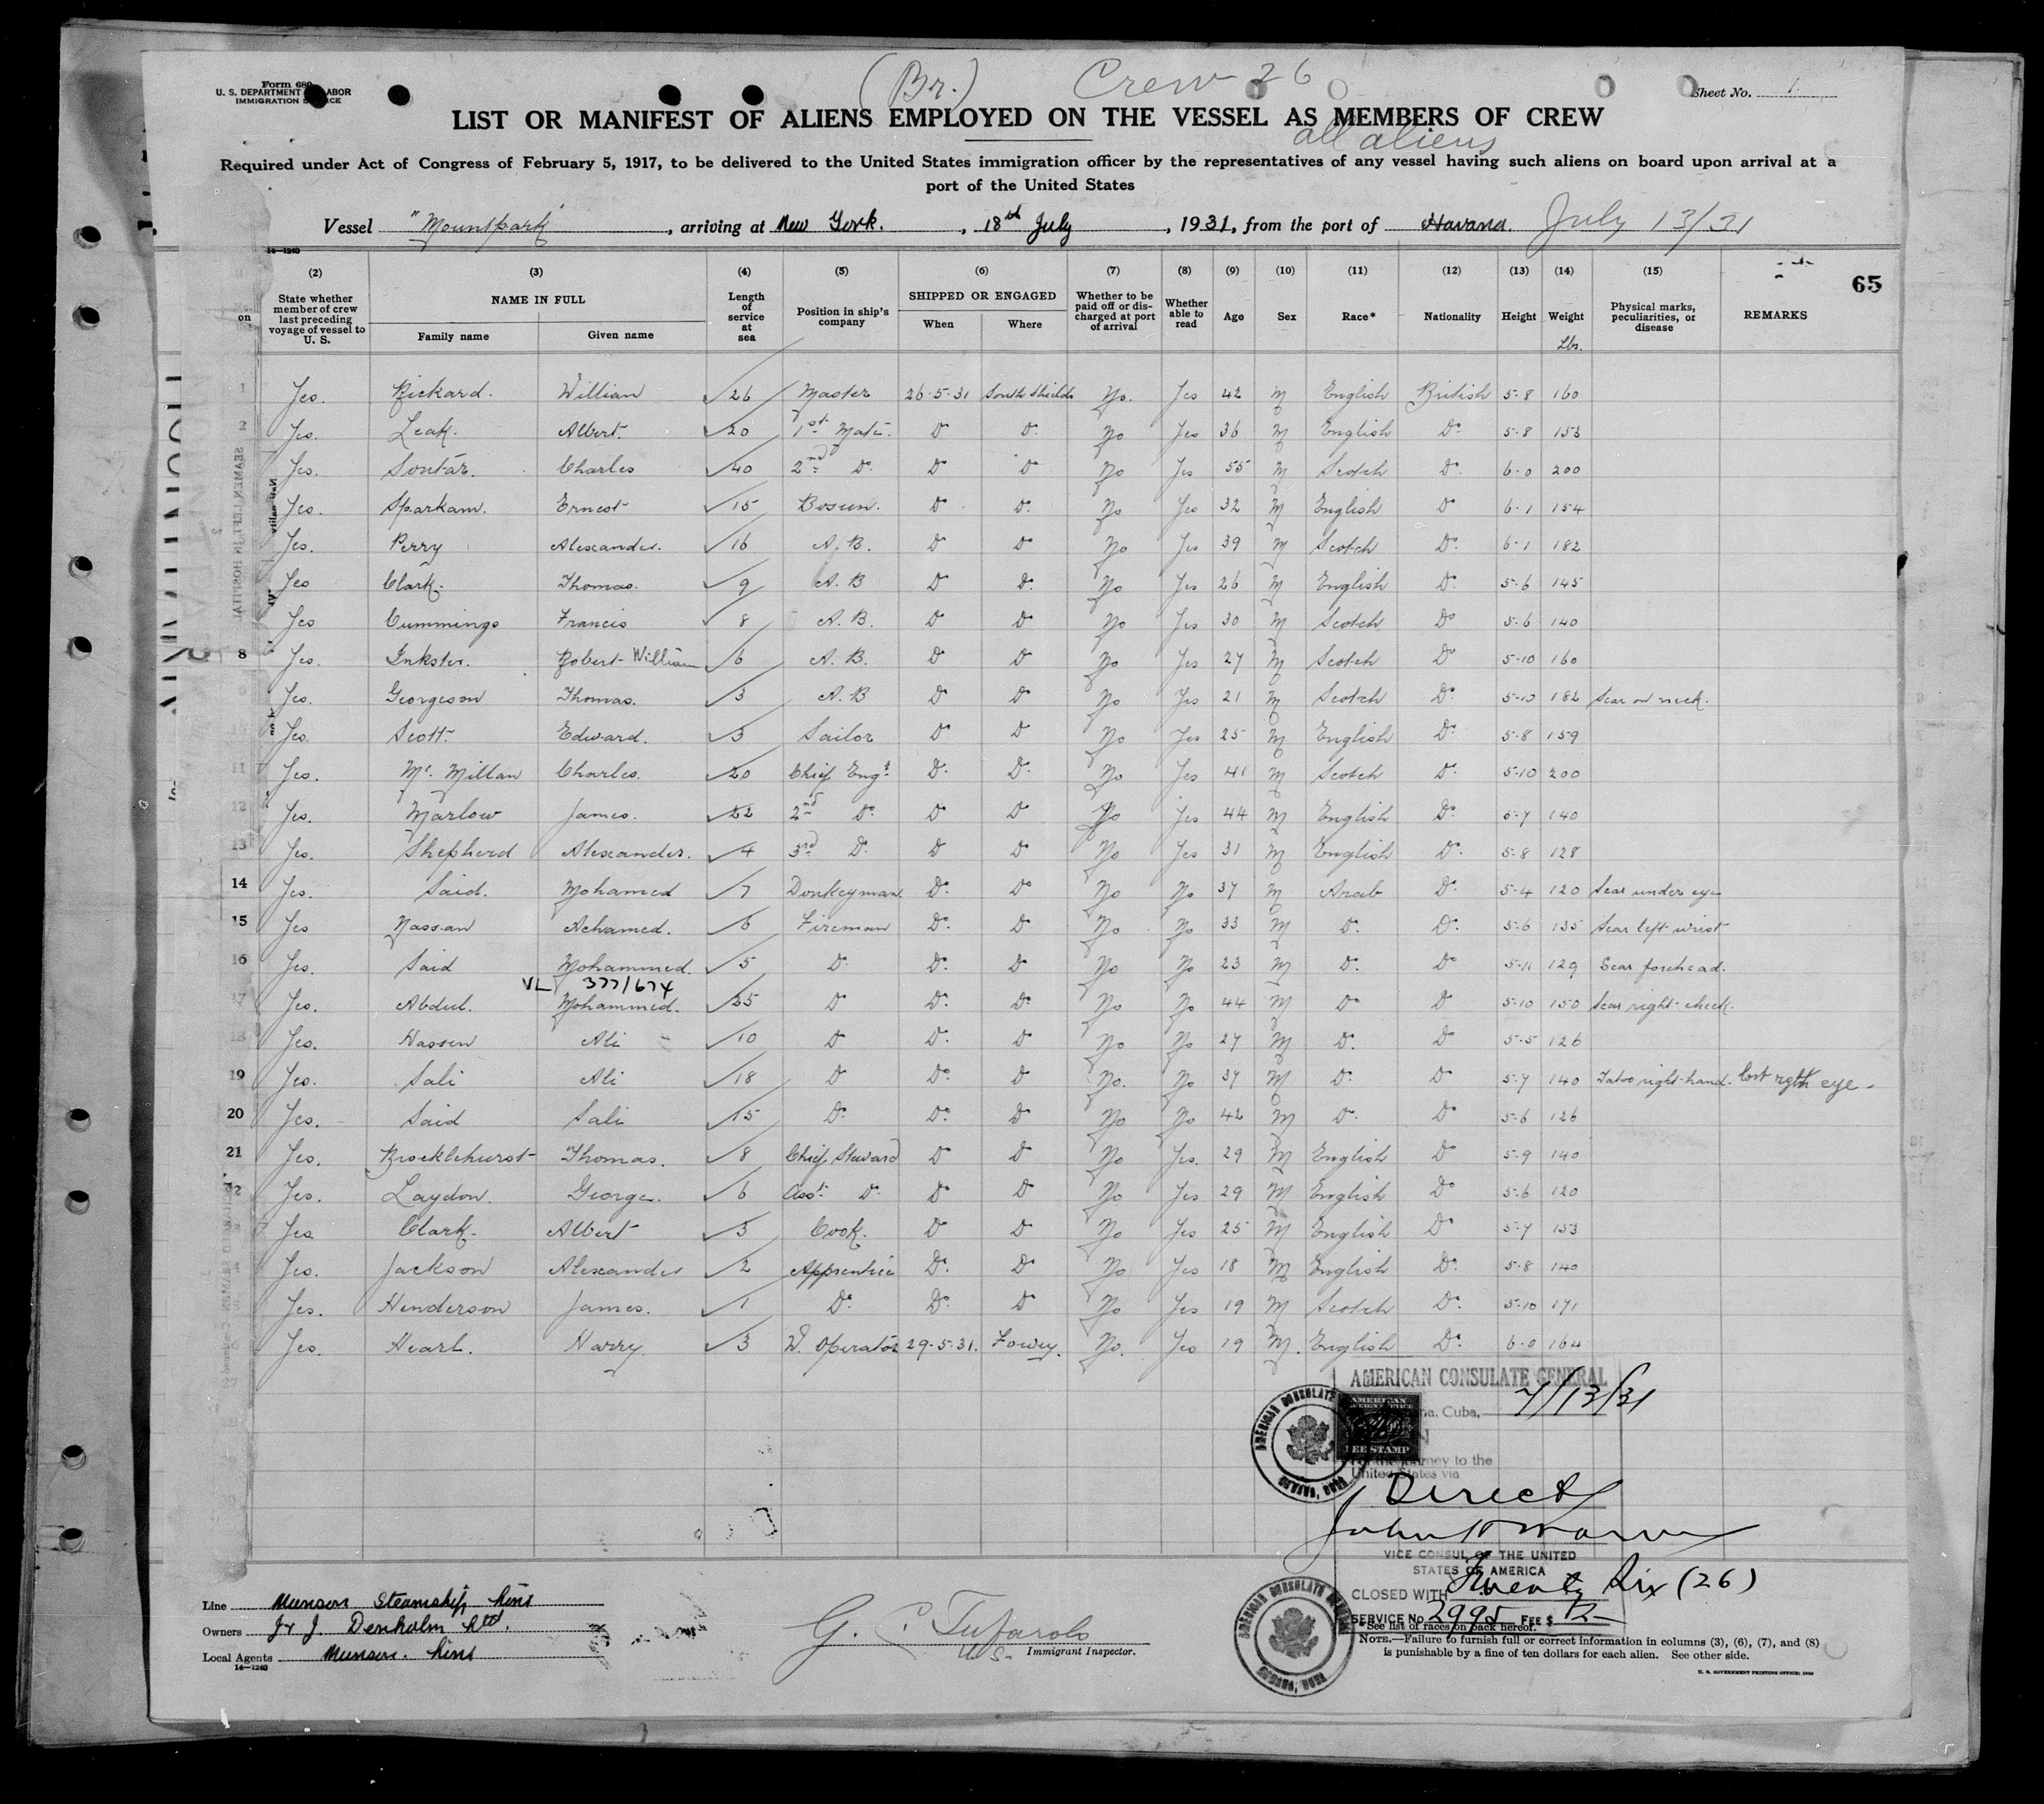 (Br.) Crew 26
Form 680
U. S. DEPARTMENT LABOR
IMMIGRATION SERVICE
Sheet No. 1
LIST OR MANIFEST OF ALIENS EMPLOYED ON THE VESSEL AS MEMBERS OF CREW
all aliens
Required under Act of Congress of February 5, 1917, to be delivered to the United States immigration officer by the representatives of any vessel having such aliens on board upon arrival at a
port of the United States
Vessel "Mountpark", arriving at New York., 18th July, 1931, from the port of Havana. July 13/31
14—1240
(2) (3) (4) (5) (6) (7) (8) (9) (10) (11) (12) (13) (14) (15)
65
on State whether member of crew last preceding voyage of vessel to U. S. NAME IN FULL Family name Given name Length of service at sea Position in ship's company SHIPPED OR ENGAGED When Where Whether to be paid off or discharged at port of arrival Whether able to read Age Sex Race* Nationality Height Weight Lbs. Physical marks, peculiarities, or disease REMARKS
1 Yes. Rickard. William 26 Master 26.5.31 South Shields No. Yes 42 M English British 5-8 160
2 Yes. Leak. Albert. 20 1st Mate. Do Do. No Yes 36 M English Do 5-8 153
Yes. Soutar. Charles 40 2nd Do. Do Do No Yes 55 M Scotch Do. 6-0 200
Yes. Sparkam. Ernest 15 Bosun. Do Do. No Yes 32 M English Do 6-1 154
Yes. Perry Alexander. 16 A.B. Do Do No Yes 39 M Scotch Do. 6-1 182
Yes Clark. Thomas. 9 A.B Do Do. No Yes 26 M English Do. 5-6 145
Yes Cummings Francis 8 A.B. Do Do No Yes 30 M Scotch Do 5-6 140
8 Yes. Inkster. Robert William 6 A.B. Do Do No Yes 27 M Scotch Do 5-10 160
9 Yes. Georgeson Thomas. 3 A.B Do Do No Yes 21 M Scotch Do. 5-10 182 Scar on neck.
10 Yes. Scott. Edward. 3 Sailor Do Do No Yes 25 M English Do. 5-8 159
11 Yes. McMillan Charles. 20 Chief Engr Do. Do. No Yes 41 M Scotch Do. 5-10 200
12 Yes. Marlow James. 22 2nd Do. Do Do No Yes 44 M English Do. 5-7 140
13 Yes. Shepherd Alexander. 4 3rd Do. Do Do. No Yes 31 M English Do. 5-8 128
14 Yes. Said. Mohamed 7 Donkeyman. Do. Do No No 37 M Arab Do. 5-4 120 Scar under eye
15 Yes Nassan Achamed. 6 Fireman Do. Do. No No 33 M Do. Do. 5-6 135 Scar left wrist
16 Yes. Said Mohammed. 5 Do. Do. Do No No 23 M Do. Do 5-11 129 Scar forehead.
VL 377/674
17 Yes. Abdul. Mohammed. 25 Do Do. Do. No No 44 M Do Do 5-10 150 Scar right cheek.
18 Yes. Hassen Ali 10 Do Do. Do No No 27 M Do. Do 5-5 126
19 Yes. Sali Ali 18 Do Do. Do No. No 37 M Do. Do 5-7 140 Tatoo right hand. lost right eye.
20 Yes. Said Sali 15 Do. Do. Do No No 42 M Do. Do 5-6 126
21 Yes. Brocklehurst Thomas. 8 Chief Steward Do Do No Yes. 29 M English Do 5-9 140
Yes. Laydon. George. 6 Asst. Do. Do Do No Yes 29 M English Do 5-6 120
Yes. Clark. Albert 3 Cook. Do Do No Yes 25 M English Do 5-7 153
Yes. Jackson Alexander 2 Apprentice Do. Do No Yes 18 M English Do. 5-8 140
Yes. Henderson James. 1 Do. Do. Do No Yes 19 M Scotch Do. 5-10 171
Yes. Hearl. Harry 3 W. Operator 29.5.31. Fowey. No. Yes 19 M. English Do. 6-0 164
AMERICAN CONSULATE GENERAL
Cuba, 7/13/31
FEE STAMP
For the journey to the
United States via
Direct
VICE CONSUL OF THE UNITED
STATES OF AMERICA
CLOSED WITH Twenty Six (26)
SERVICE No. 2995 FEE $ 2—
Line Munson Steamship Line
Owners J & J Denholm Ltd.
Local Agents Munson. Line
14—1240
G. C. Tufarolo
U.S. Immigrant Inspector.
AMERICAN CONSULATE GENERAL
HAVANA, CUBA
*See list of races on back hereof.
NOTE.—Failure to furnish full or correct information in columns (3), (6), (7), and (8)
is punishable by a fine of ten dollars for each alien. See other side.
U. S. GOVERNMENT PRINTING OFFICE: